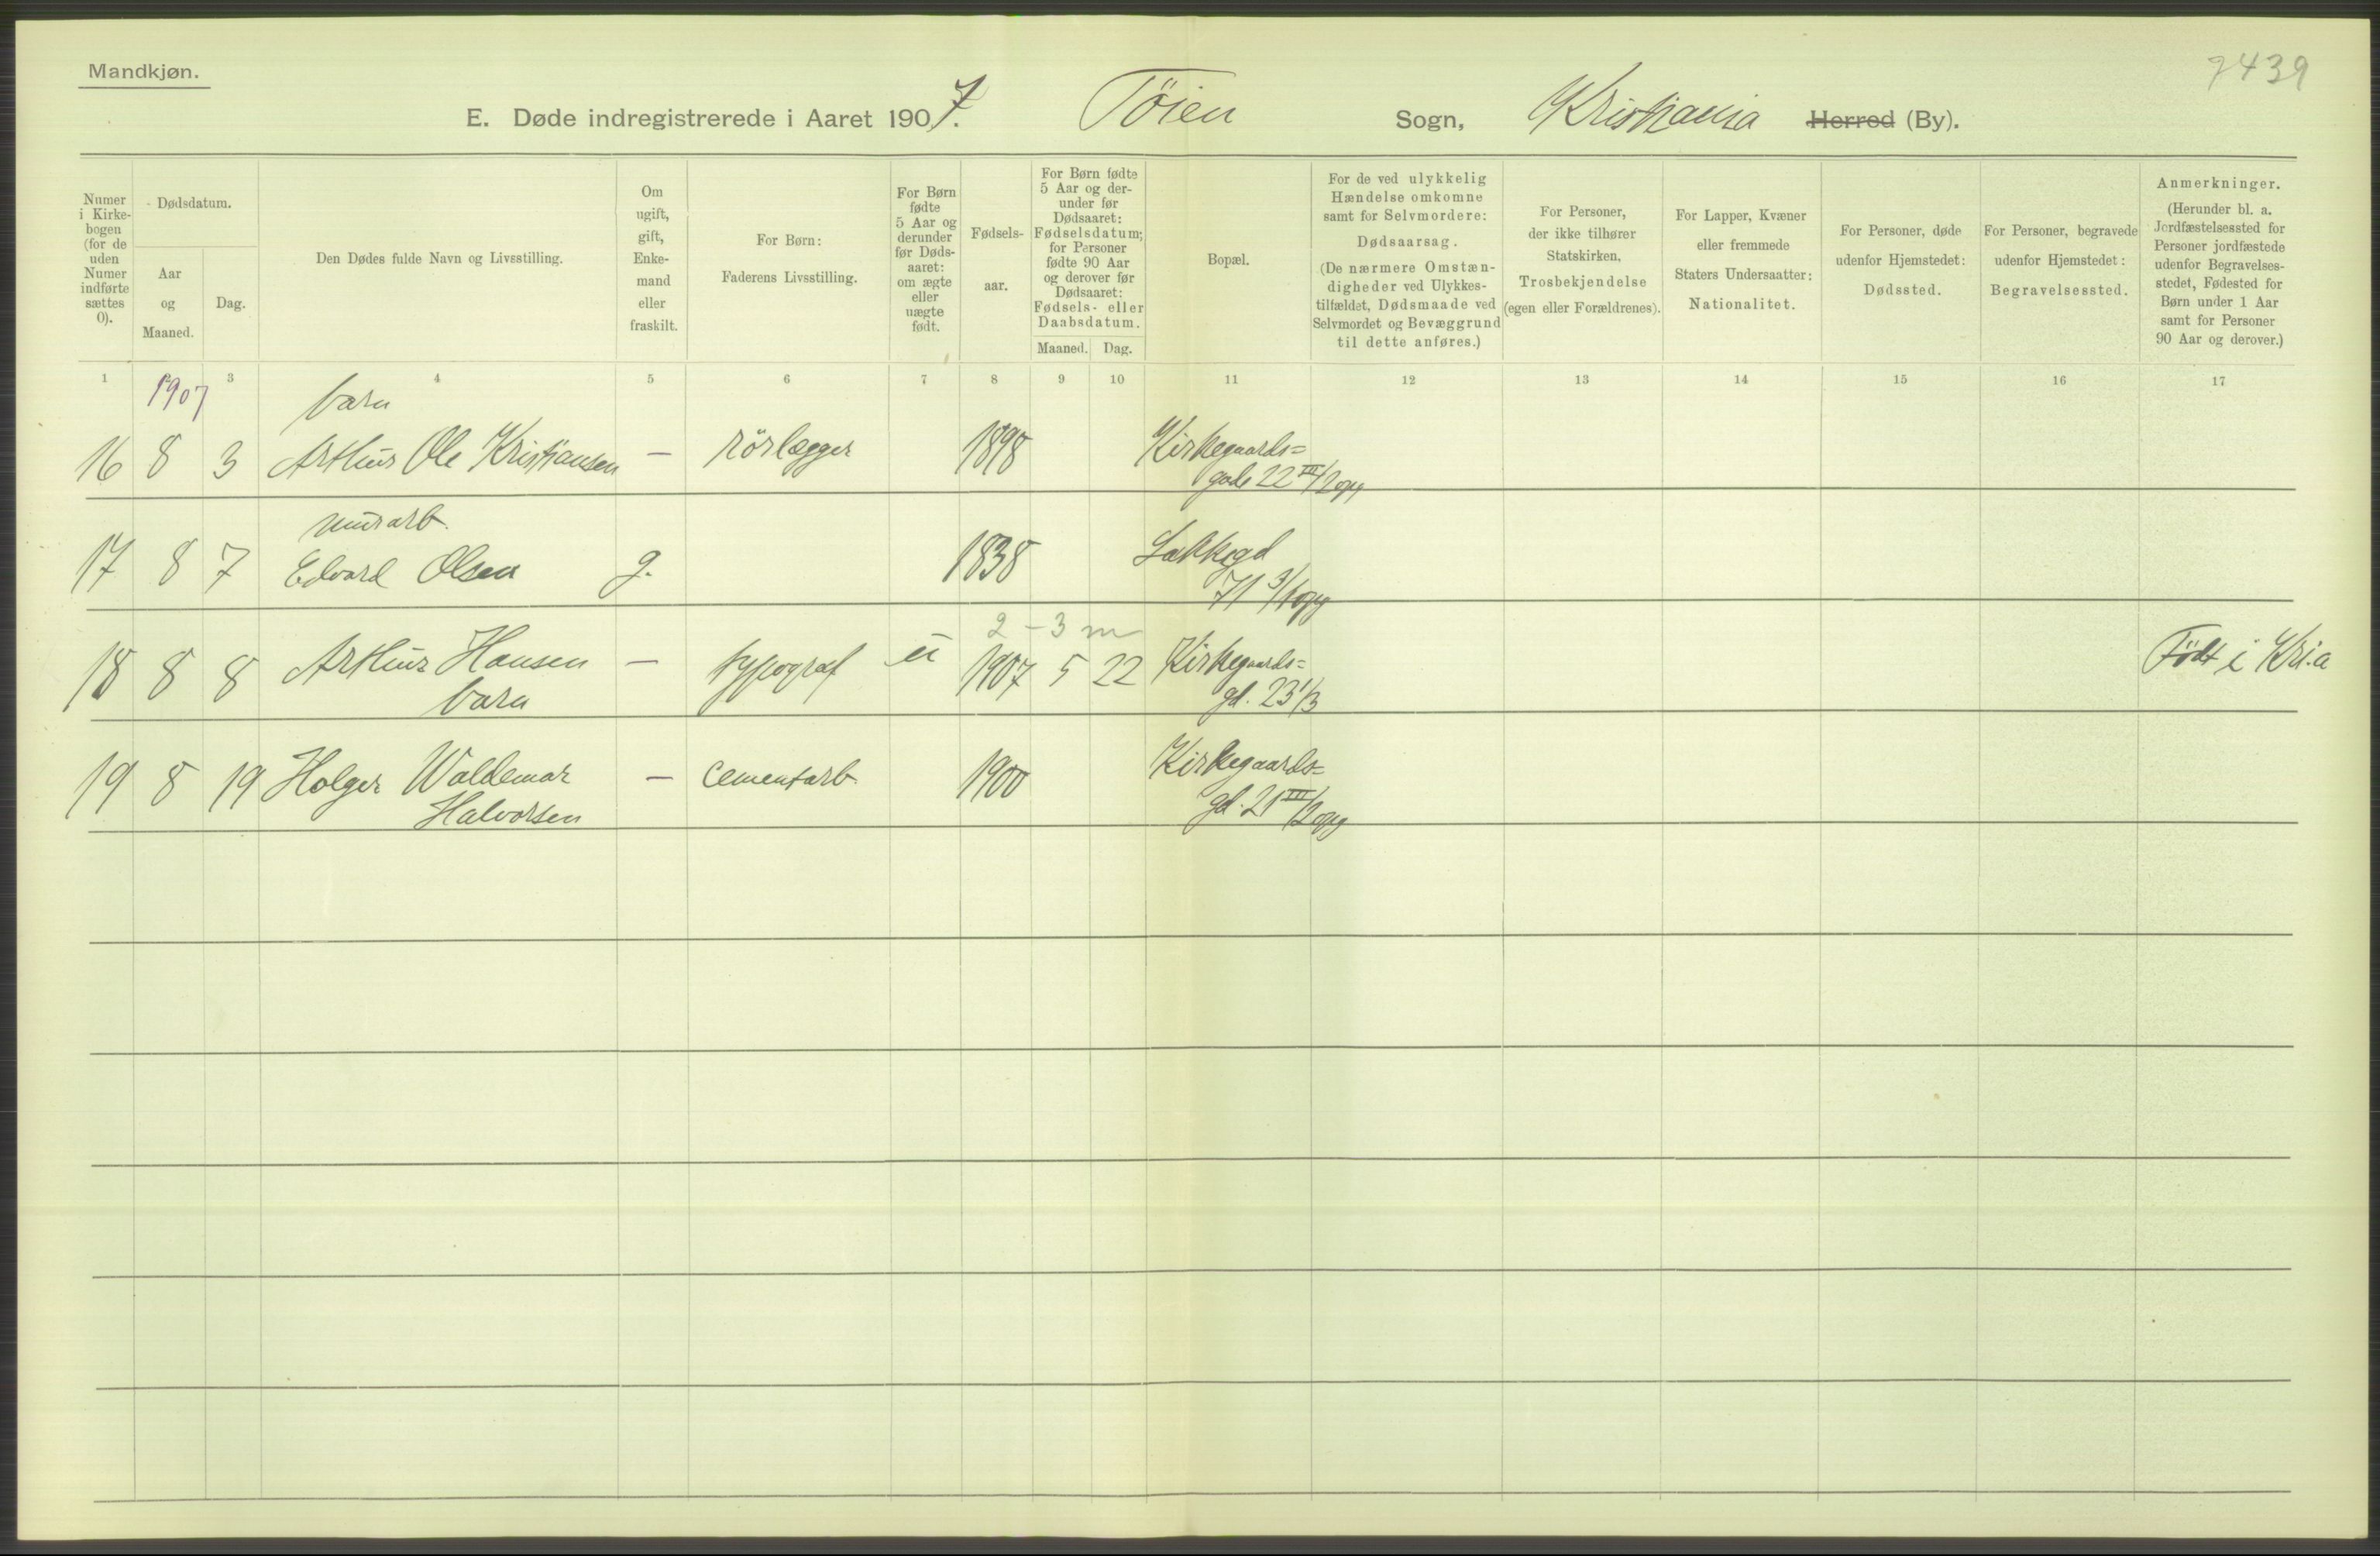 Mandkjøn.
7439
E. Døde indregistrerede i Aaret 1907. Töien Sogn, Kristiania Herred (By).
Numer i Kirkebogen (for de uden Numer indførte sættes 0).
Dødsdatum.
Aar og Maaned.
Dag.
Den Dødes fulde Navn og Livsstilling.
Om ugift, gift, Enkemand eller fraskilt.
For Børn: Faderens Livsstilling.
For Børn fødte 5 Aar og derunder før Dødsaaret: om ægte eller uægte født.
Fødselsaar.
For Børn fødte 5 Aar og derunder før Dødsaaret: Fødselsdatum; for Personer fødte 90 Aar og derover før Dødsaaret: Fødsels- eller Daabsdatum.
Maaned. Dag.
Bopæl.
For de ved ulykkelig Hændelse omkomne samt for Selvmordere: Dødsaarsag. (De nærmere Omstændigheder ved Ulykkestilfældet, Dødsmaade ved Selvmordet og Bevæggrund til dette anføres.)
For Personer, der ikke tilhører Statskirken, Trosbekjendelse (egen eller Forældrenes).
For Lapper, Kvæner eller fremmede Staters Undersaatter: Nationalitet.
For Personer, døde udenfor Hjemstedet: Dødssted.
For Personer, begravede udenfor Hjemstedet: Begravelsessted.
Anmerkninger. (Herunder bl. a. Jordfæstelsessted for Personer jordfæstede udenfor Begravelsesstedet, Fødested for Børn under 1 Aar samt for Personer 90 Aar og derover.)
1 3 4 5 6 7 8 9 10 11 12 13 14 15 16 17
1907
barn
16 8 3 Arthur Ole Kristiansen — rörlægger 1898 Kirkegaards=
gade 22 III/2opg
murarb.
17 8 7 Edvard Olsen g. 1838 Lakkegd
71 3/1opg
2 – 3 m
18 8 8 Arthur Hansen — typograf u 1907 5 22 Kirkegaards= Födt i Kri.a
barn gd. 23 1/3
19 8 19 Holger Waldemar — cementarb. 1900 Kirkegaards=
Halvorsen gd. 21 III/2opg